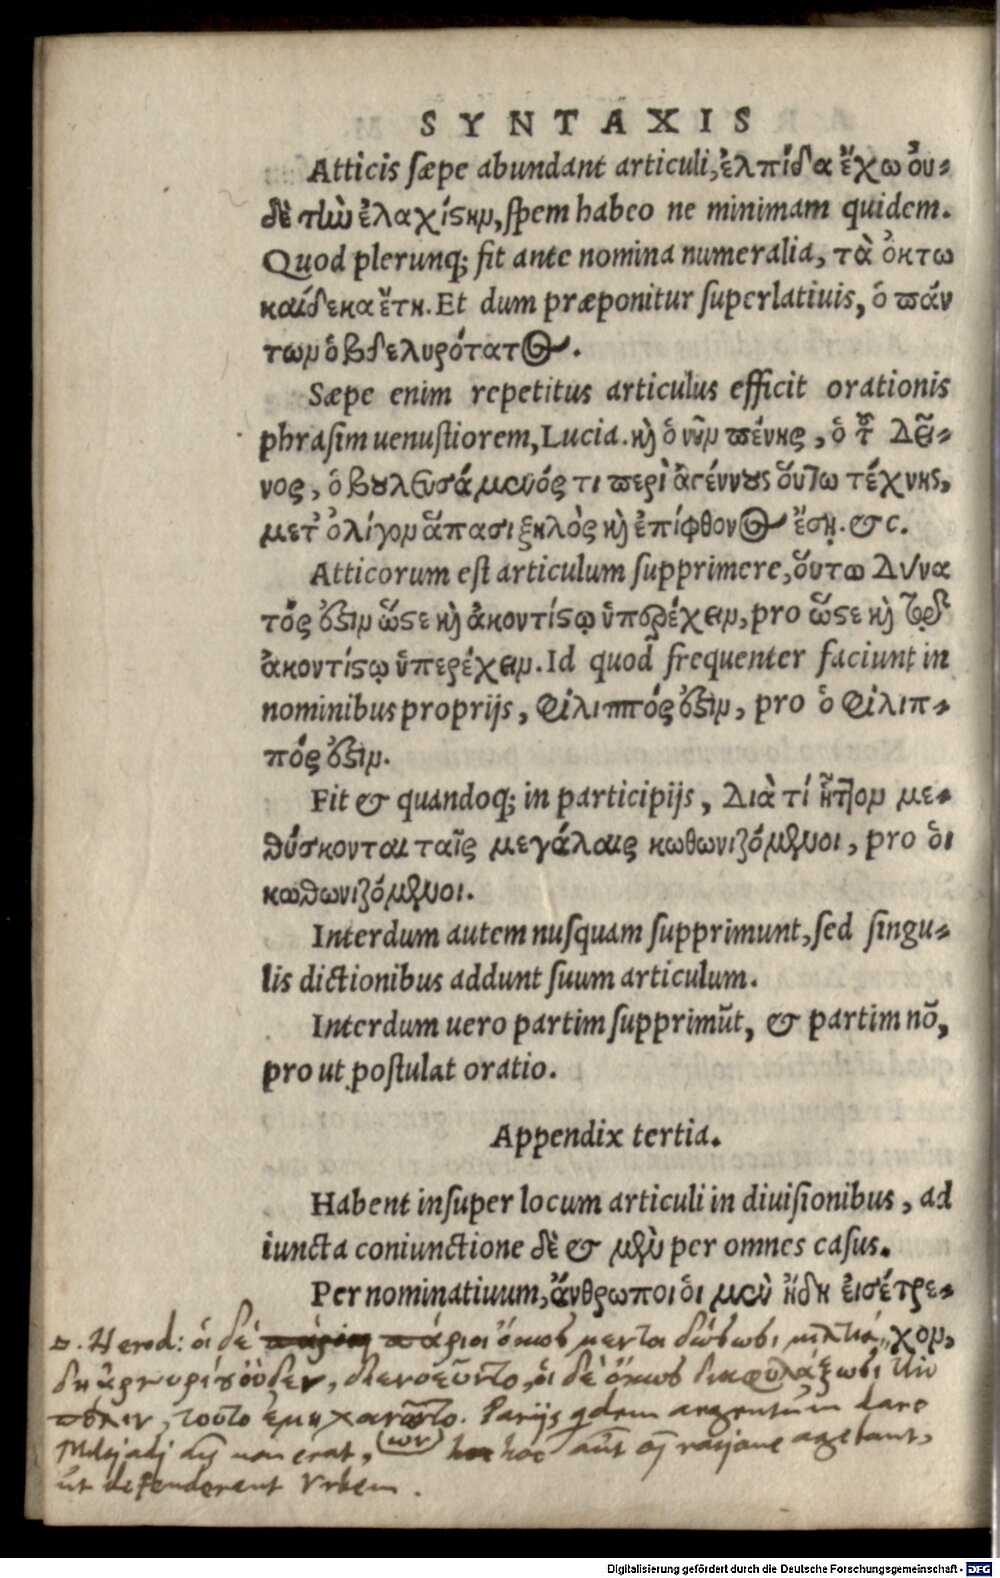 SYNTAXIS
Atticis sæpe abundant articuli, ἐλπίδα ἔχω ὀυ-
δὲ τὴν ἐλαχίστην, spem habeo ne minimam quidem.
Quod plerunq; fit ante nomina numeralia, τὰ ὀκτω
καίδεκα ἔτη. Et dum præponitur superlatiuis, ὁ πάν
των ὁ βδελυρότατος.
Sæpe enim repetitus articulus efficit orationis
phrasim uenustiorem, Lucia. κỳ ὁ νῦν πένης, ὁ τ δεῖ-
νος, ὁ βουλευσάμενός τι περὶ ἀγέννους ὅυτω τέχνης,
μετ᾽ ὀλίγον ἅπασι ζηλὸς κỳ ἐπίφθονος ἔση. &c.
Atticorum est articulum supprimere, ὅυτω δυνα
τός ὅστιν ὥστε κỳ ἀκοντίστῳ ὑπερέχειν, pro ὥστε κỳ τῷ
ἀκοντίστῳ ὑπερέχειν. Id quod frequenter faciunt in
nominibus proprijs, Φίλιππός ὅστιν, pro ὁ Φίλιπ-
πός ὅστιν.
Fit & quandoq; in participijs, Διὰ τί ἧττον με-
θύσκονται ταῖς μεγάλαις κωθωνιζόμενοι, pro ὁι
κωθωνιζόμενοι.
Interdum autem nusquam supprimunt, sed singu-
lis dictionibus addunt suum articulum.
Interdum uero partim supprimūt, & partim nō,
pro ut postulat oratio.
Appendix tertia.
Habent insuper locum articuli in diuisionibus, ad
iuncta coniunctione δὲ & μὲν per omnes casus.
Per nominatiuum, ἄνθρωποι ὁι μὲν ἤδη ἐισέτρε-
χον,
Herod: ὁι δὲ πάριοι ὅκως μεν
ὀυδεν, διενοεῦντο, ὁι δὲ ὅκως διαφυλάξωσι τὴν
πόλιν, τοῦτο ἐμηχανῶντο. Parijs qdem argentum dare
non erat, (ων) hoc aūt ratione agebant,
ut defenderent Vrbem.
Digitalisierung gefördert durch die Deutsche Forschungsgemeinschaft - DFG